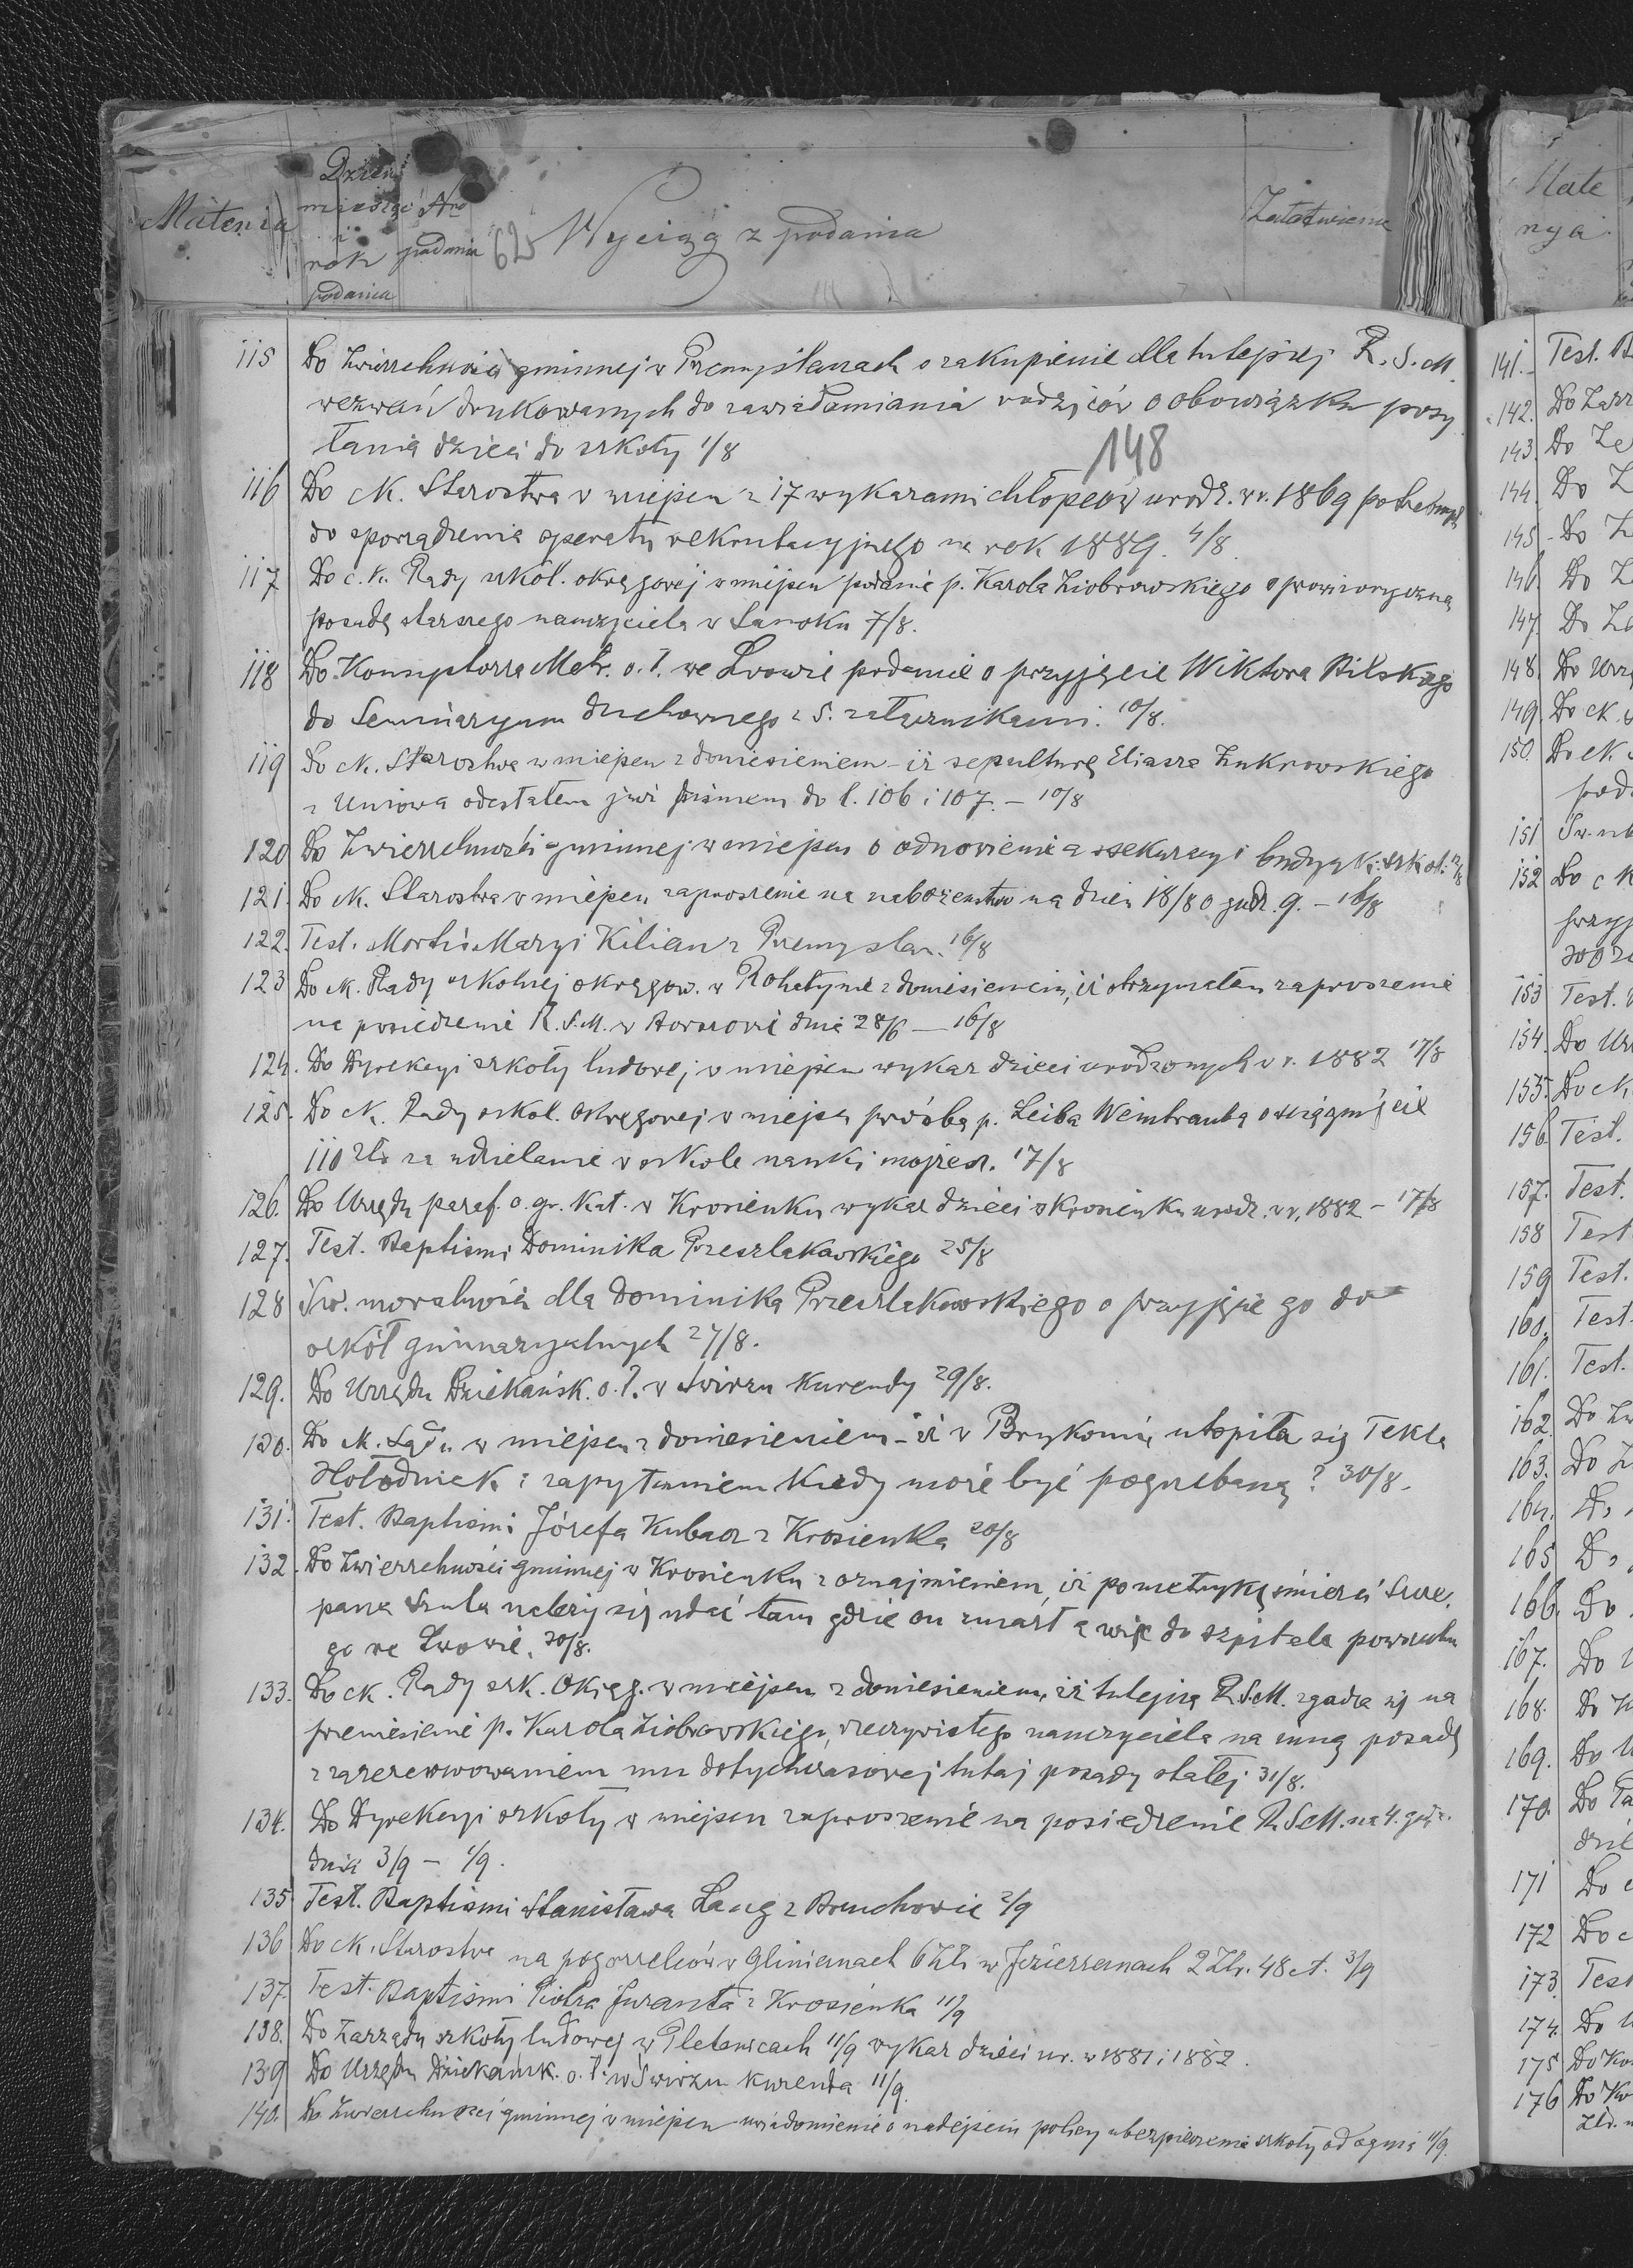 Materia
Dzień miesiąc i rok podania
Nro podania
62
Wyciąg z podania
Załatwienie
115 Do Zwierzchności gminnej w Przemyślanach o zakupienie dla tutejszej R.S.M.
wezwań drukowanych do zawiadamiania rodziców o obowiązku posy
łania dzieci do szkoły 1/8
148
116 Do ck. Starostwa w miejscu z 17 wykazami chłopców urodz. w r. 1869 potrzebnych
do sporządzenia operatu rekrutacyjnego na rok 1889. 4/8
117 Do c.k. Rady szkol. okręgowej w miejscu podanie p. Karola Ziobrowskiego o prowizoryczną
posadę starszego nauczyciela w Sanoku 7/8.
118 Do Konsystorza Metr. o.ł. we Lwowie podanie o przyjęcie Wiktora Bilskiego
do Seminaryum duchownego z 5. załącznikami. 10/8.
119 Do ck. Starostwa w miejscu z doniesieniem - iż sepulturę Eliasza Żukrowskiego
z Uniowa odesłałem już pismem do l. 106 i 107. - 10/8
120 Do Zwierzchności gminnej w miejscu o odnowienie asekuracyi budynk. szkol. 12/8
121. Do ck. Starostwa w miejscu zaproszenie na nabożeństwo na dzień 18/8 o godz. 9. - 16/8
122. Test. Mortis Maryi Kilian z Przemyślan. 16/8
123 Do ck. Rady szkolnej okręgow. w Rohatynie z doniesieniem, iż otrzymałem zaproszenie
na posiedzenie R.S.M. w dnia 28/6 — 16/8
124. Do Dyrekcyi szkoły ludowej w miejscu wykaz dzieci urodzonych w r. 1882 17/8
125. Do ck. Rady szkol. Okręgowej w miejscu prośbę p. Leiba Weintrauba o
110 złr za udzielanie w szkole nauki mojżesz. 17/8
126. Do Urzędu paraf. o. gr. kat. w Krosienku wykaz dzieci w Krosienku urodz. w r. 1882 - 17/8
127. Test. Baptismi Dominika Przeszlakowskiego 25/8
128 Św. moralności dla Dominika Przeszlakowskiego o przyjęcie go do
szkół gimnazyalnych 27/8.
129. Do Urzędu Dziekańsk. o.ł. w Świrzu Kurendy 29/8.
130. Do ck. Sądu w miejscu z doniesieniem - iż w Brykoniu utopiła się Tekla
Hołodniek z zapytaniem kiedy może być pogrzebaną? 30/8.
131. Test. Baptismi Józefa Kubacz z Krosienka 30/8
132. Do Zwierzchności gminnej w Krosienku z oznajmieniem, iż po metrykę śmierci Szcze,
pana Szula należy się udać tam gdzie on zmarł a więc do szpitala powszechne
go we Lwowie. 30/8.
133. Do ck. Rady szk. Okręg. w miejscu z doniesieniem, iż tutejsza R.S.M. zgadza się na
przeniesienie p. Karola Ziobrowskiego, rzeczywistego nauczyciela na inną posadę
z zarezerwowaniem mu dotychczasowej tutaj posady stałej 31/8.
134. Do Dyrekcyi szkoły w miejscu zaproszenie na posiedzenie R.S.M. na 4. godz.
dnia 3/9 - 1/9.
135 Test. Baptismi Stanisława Lang z Borszchowic 2/9
136 Do ck. Starostwa na pogorzelców w Glinianach 6 Złr. w Jezierzanach 2 Złr. 48 ct. 3/9
137. Test. Baptismi Piotra Juranta z Krosienka 11/9
138. Do Zarządu szkoły ludowej w Pletenicach 11/9 wykaz dzieci ur. w 1881 i 1882.
139 Do Urzędu Dziekańsk. o.ł. w Świrzu kurenda 11/9.
140. Do Zwierzchności gminnej w miejscu uwiadomienie o nadejściu policy ubezpieczenia szkoły od ognia 11/9.
Mate
rya
141. Test. B
142. Do Zarz
143. Do Ze
144. Do Z
145. Do Z
146. Do Z
147. Do Za
148. Do Urzę
149. Do ck.
150. Do ck.
poda
151 Św. ub
152 Do c k
przyj
153 Test.
154. Do Urz
155. Do ck
156. Test.
157. Test.
158 Test
159 Test.
160. Test.
161. Test.
162. Do Zw
163. Do Z
164. Do
165 Do
166. Do
167. Do U
168. Do
169. Do U
170. Do
dzie
171 Do c
172 Do c
173. Test
174. Do U
175 Do Kon
176 Do
Złr.